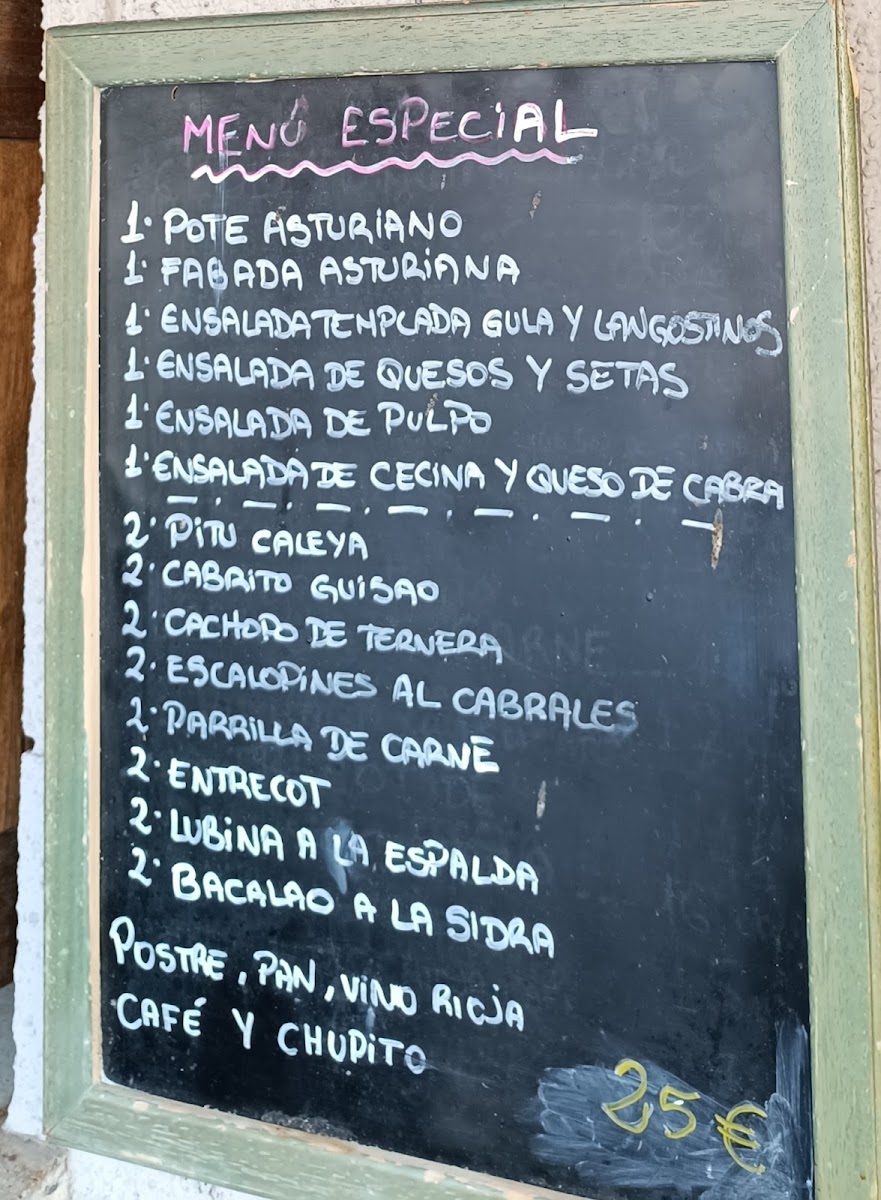 MENÚ ESPECIAL
1· POTE ASTURIANO
1· FABADA ASTURIANA
1· ENSALADA TEMPLADA GULA Y LANGOSTINOS
1· ENSALADA DE QUESOS Y SETAS
1· ENSALADA DE PULPO
1· ENSALADA DE CECINA Y QUESO DE CABRA
2· PITU CALEYA
2· CABRITO GUISAO
2· CACHOPO DE TERNERA
2· ESCALOPINES AL CABRALES
2· PARRILLA DE CARNE
2· ENTRECOT
2· LUBINA A LA ESPALDA
2· BACALAO A LA SIDRA
POSTRE, PAN, VINO RIOJA
CAFÉ Y CHUPITO
25 €